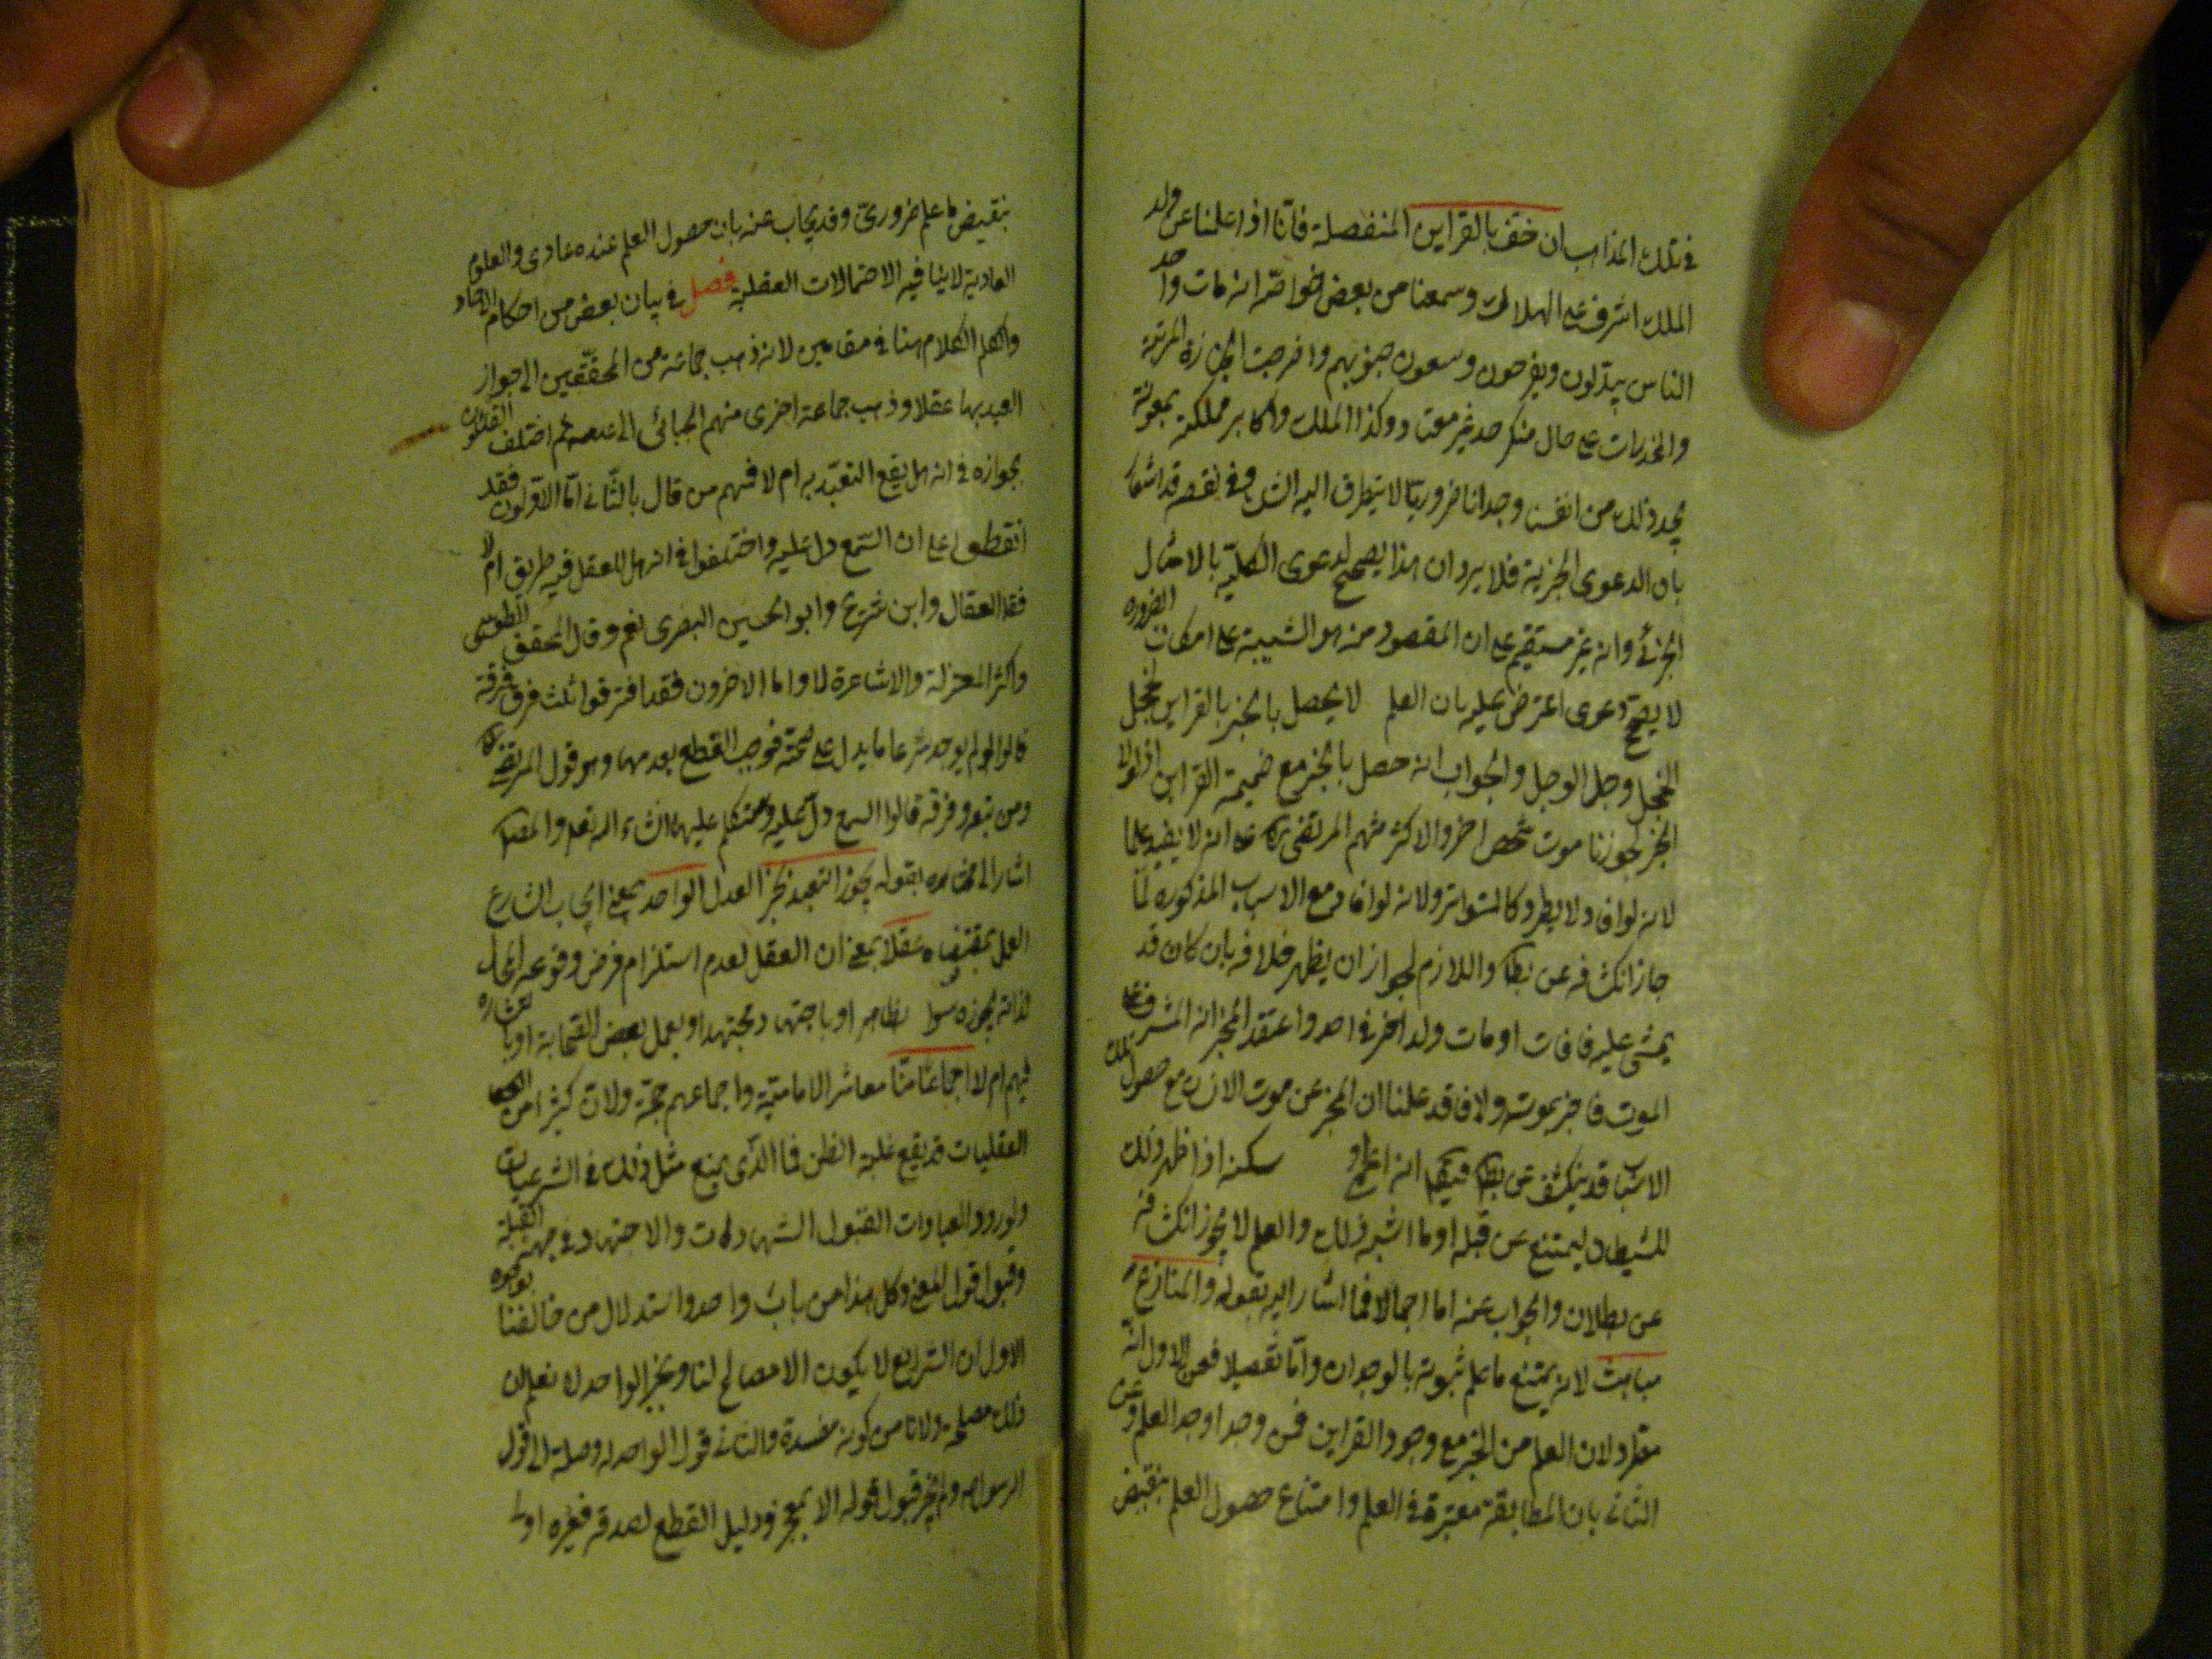 في تلك المذاهب ان خف بالقراين المنفصلة فانا اذا علمنا عن ولد
الملك اشرف على الهلاك وسمعنا من بعض خواصه انه مات واحد
الناس يبدلون ويفرحون وسعون جنوبهم واخرجت الجنازة المرتبة
والمخدرات على حال منكر صد غير معتاد وكذا الملك واكابر مملكته بموته
يجد ذلك من انفسنا وجدانا ضروريا لا يتطرق اليه الشك وفي نقصه قد اشعار
بان الدعوى الجزية فلا يرد ان هذا يصح لدعوى الكلية بالامثال
الجزئي وانه غير مستقيم على ان المقصود منه هو التنبيه على امكان الضرورة
لا يصح دعوى اعترض عليه بان العلم لا يحصل بالخبر بالقراين كخجل
الخجل وجل الوجل والجواب انه حصل بالخبر مع ضميمة القراين اذ لولا
الخبر لجوزنا موت شخص اخر والاكثر منهم المرتضى على انه لا يفيد علما
لانه لو افاد لاطرد كالمتواتر ولانه لو افاد مع الاسباب المذكوره لما
جاز انكشافه عن بطلا واللازم لجواز ان يظهر خلافه بان كان قد
يغشى عليه فافات او مات ولد اخر في احد واعتقد المخبر انه المشرف على
الموت فاخبر بموته ولا فاقد علمنا ان المخبر عن موت الانسان مع حصول تلك
الاسباب قد ينكشف عن بطلا فيقا انه اغمي او سكنه اذا ظهر ذلك
للشيطان ليمتنع عن قبله او ما اشبه ذلك والعلم لا يجوز انكشافه
عن بطلان والجواب عنه اما اجمالا فما اشار اليه بقوله والمنازع
مباهت لانه يمتنع ما علم ثبوته بالوجدان واما تفصيلا فعن الاول انه
مطرد لان العلم من الخبر مع وجود القراين فمن وجدا وجد العلم وعن
الثاني بان المطابقة معتبرة في العلم وامتناع حصول العلم بنقيض
بنقيض ما علم ضروري وقد يجاب عنه بان حصول العلم عنده عادي والعلوم
العادية لا ينافيه الاحتمالات العقلية فصل في بيان بعض من احكام الاحاد
واعلم الكلام هنا في مقامين لانه ذهب جماعة من المحققين الى جواز
التعبد بها عقلا وذهب جماعة اخرى منهم الجبائي الى عدمه ثم اختلف القائلون
بجوازه في انه هل يقع التعبد به ام لا فمنهم من قال بالثاني اما الاولون فقد
اتفقوا على ان السمع دل عليه واختلفوا في انه هل للعقل فيه طريق ام لا
فقد القفال وابن شريح وابو الحسين البصري نعم وقال المحقق الطوسي
واكثر المعتزلة والاشاعرة لا واما الاخرون فقد افترقوا ثلث فرق فرقة
قالوا لو لم يوجد شرعا ما يدل على صحته فوجب القطع بعدمها وهو قول المرتضى
ومن تبعه وفرقة قالوا السمع دل عليه وسنتكلم عليها انشاء الله تعالى والمصنف
اشار الى مختاره بقوله يجوز التعبد بخبر العدل الواحد بمعنى ايجاب الشارع
العمل بمقتضاه عقلا بمعنى ان العقل لعدم استلزام فرض وقوعه المحال
لذاته يجوزه سوا بظاهر او باجتهاد مجتهد او بعمل بعض الصحابة او باشتهاره
فيهم ام لا اجماعا منا معاشر الامامية واجماعهم حجة ولان كثيرا من
العقليات قد يقع غلبة الظن فما الذي يمنع مثل ذلك في الشرعيات
ولورود العبادات القبول الشهادات والاجتهاد في جهة القبلة
وقبوا قول المفتي وكل هذا من باب واحد واستدلال من خالفنا بوجوه
الاول ان الشرايع لا يكون الا مصالح لنا وبخبر الواحد لا نعلم ان
ذلك مصلحة ولا نامن كونه مفسدة والثاني قول الواحد له وصلة الى قول
الرسول ولم يجز قبول قوله الا بمعجز ودليل القطع لصدقه فغيره اولى